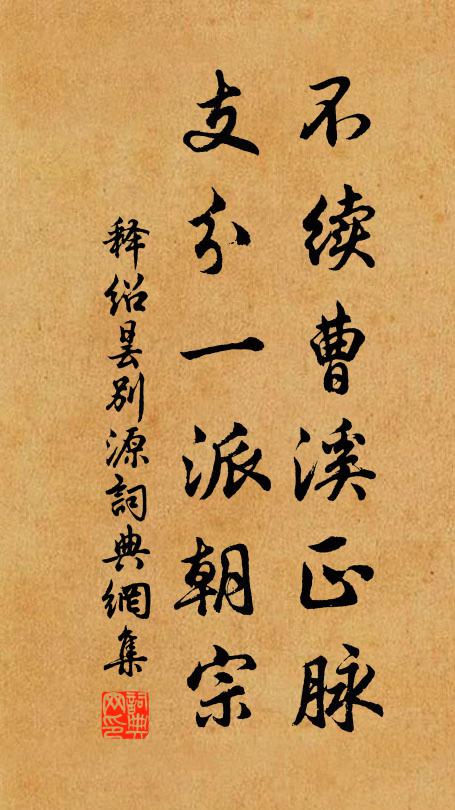 不续曹溪正脉
支分一派朝宗
释绍昙别源詞典網集
詞典网印